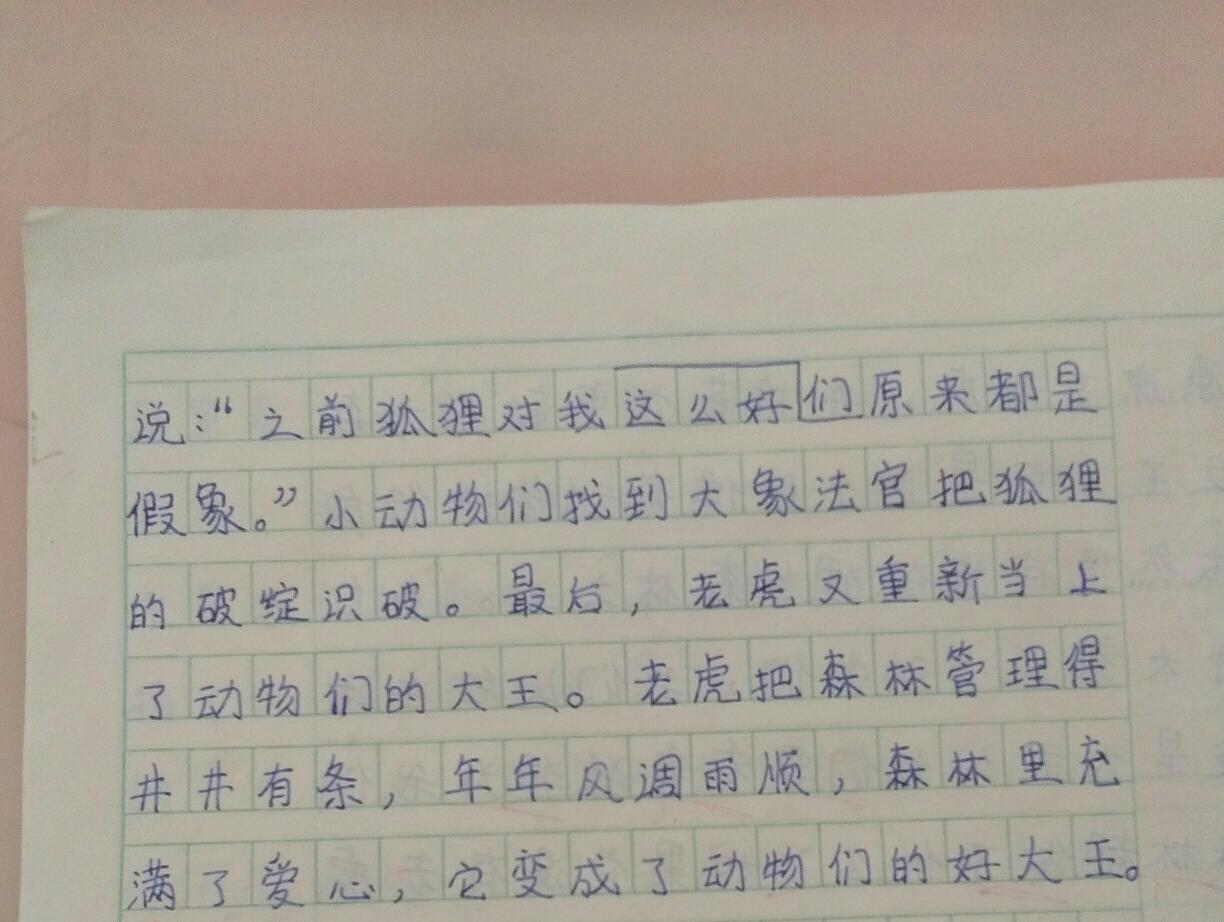 说:“之前狐狸对我这么好们原来都是
假象。”小动物们找到大象法官把狐狸
的破绽识破。最后,老虎又重新当上
了动物们的大王。老虎把森林管理得
井井有条,年年风调雨顺,森林里充
满了爱心,它变成了动物们的好大王。